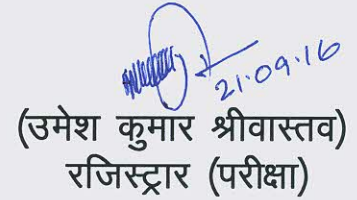 21.09.16
(उमेश कुमार श्रीवास्तव)
रजिस्ट्रार (परीक्षा)